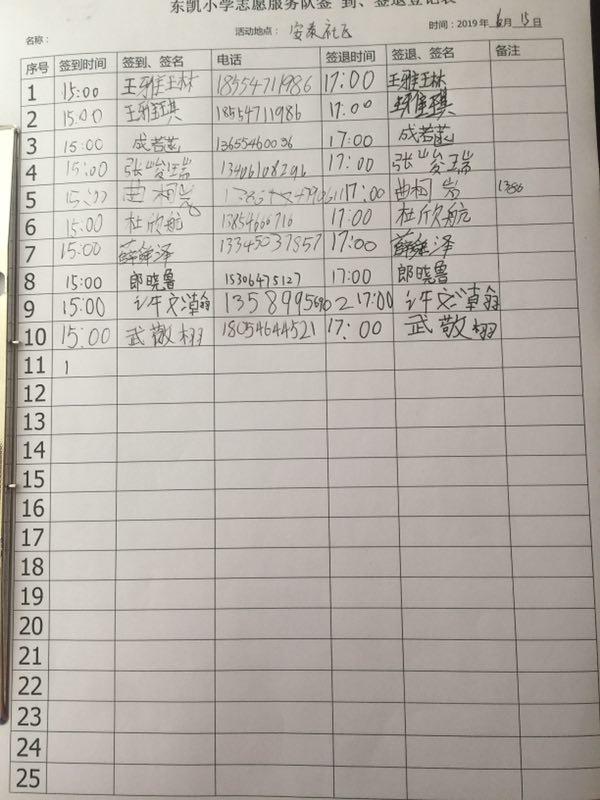 东凯小学志愿服务队签 到、签退登记表
名称： 活动地点： 安泰社区 时间：2019年6月15日
序号 签到时间 签到、签名 电话 签退时间 签退、签名 备注
1 15:00 王雅琳 18554711986 17:00 王雅琳
2 15:00 王雅琪 18554711986 17:00 王雅琪
3 15:00 成若菡 13655460096 17:00 成若菡
4 15:00 张峻瑞 13406108296 17:00 张峻瑞
5 15:00 曲柯岩 17:00 曲柯岩 1386
6 15:00 杜欣航 13854666716 17:00 杜欣航
7 15:00 薛舜泽 13345037857 17:00 薛舜泽
8 15:00 郎晓鲁 15306475127 17:00 郎晓鲁
9 15:00 许文瀚 17:00 许文瀚
10 15:00 武敬栩 18054644521 17:00 武敬栩
11 1
12
13
14
15
16
17
18
19
20
21
22
23
24
25